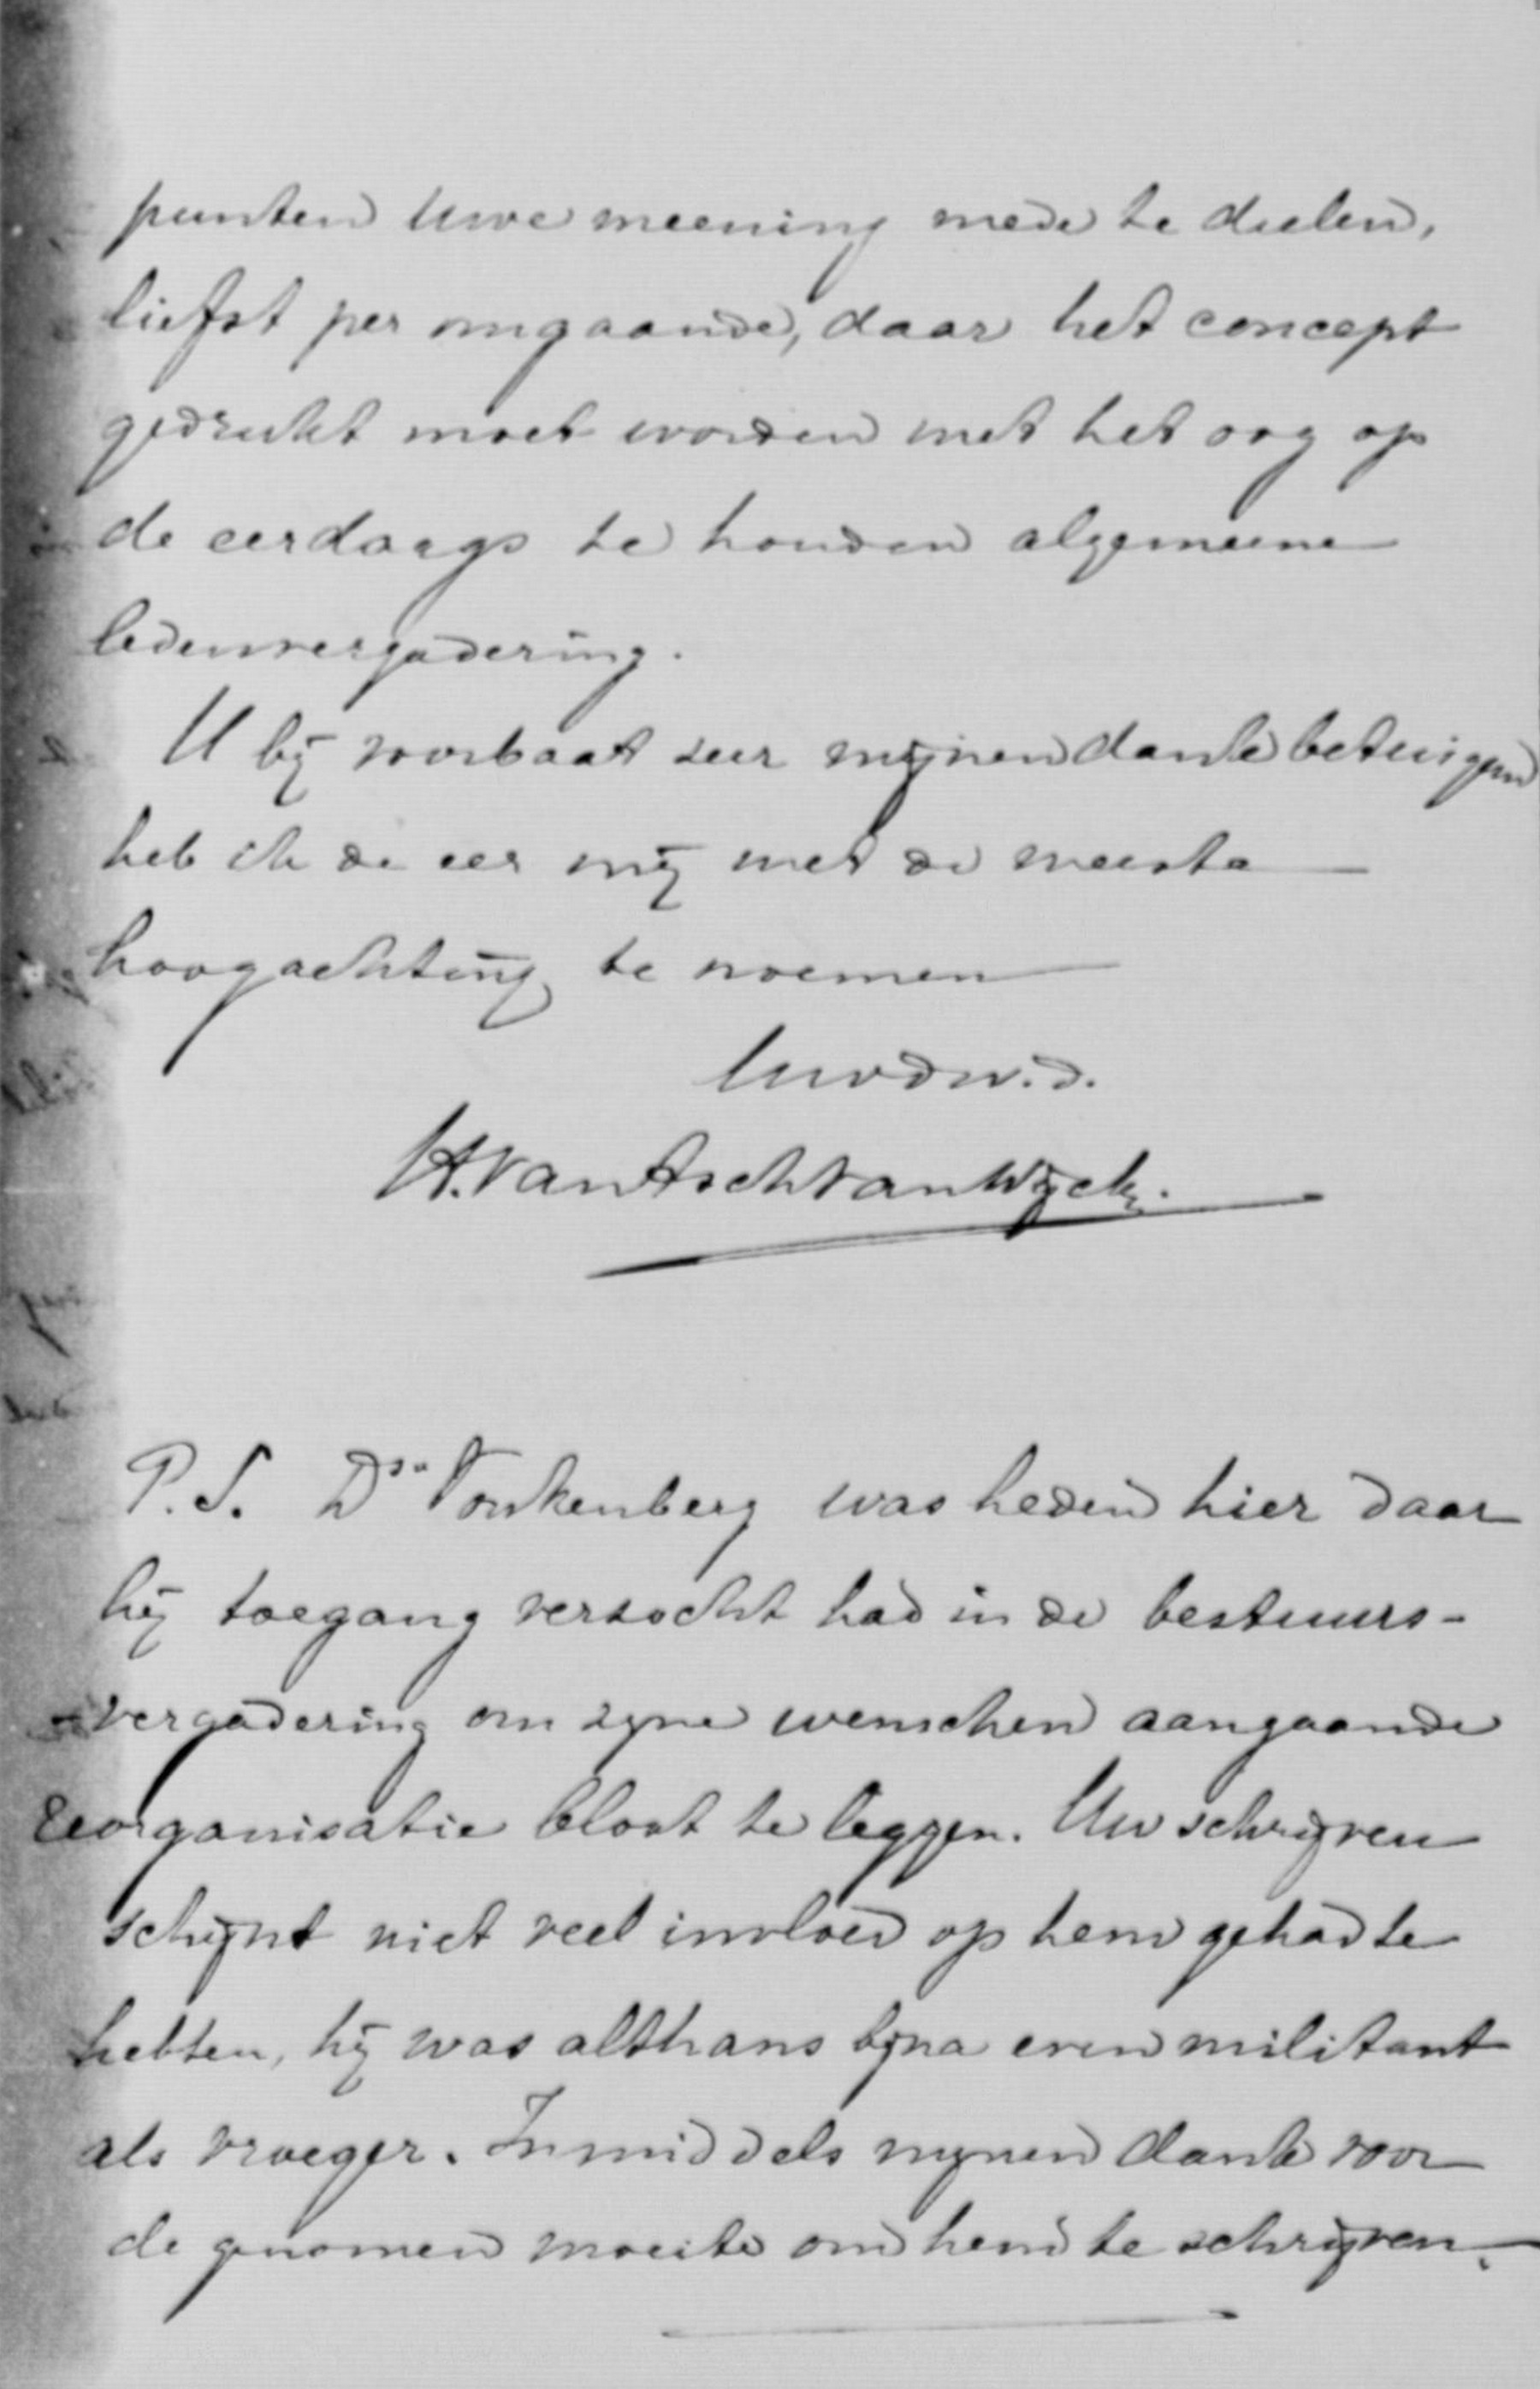 punten Uwe meening mede te deelen,
liefst per omgaande, daar het concept
gedrukt moet worden met het oog op
de eerdaags te houden algemeene
ledenvergadering.
U bij voorbaat zeer mijnen dank betuigend
heb ik de eer mij met de meeste
hoogachting te noemen
Uwdw.d.
H. van Asch van Wijck.
P.S. Ds. Vonkenberg was heden hier daar
hij toegang verzocht had in de bestuurs-
-vergadering om zyne wenschen aangaande
reorganisatie bloot te leggen. Uw schrijven
schijnt niet veel invloed op hem gehad te
hebben, hij was althans bijna even militant
als vroeger. Inmiddels mynen dank voor
de genomen moeite om hem te schrijven.